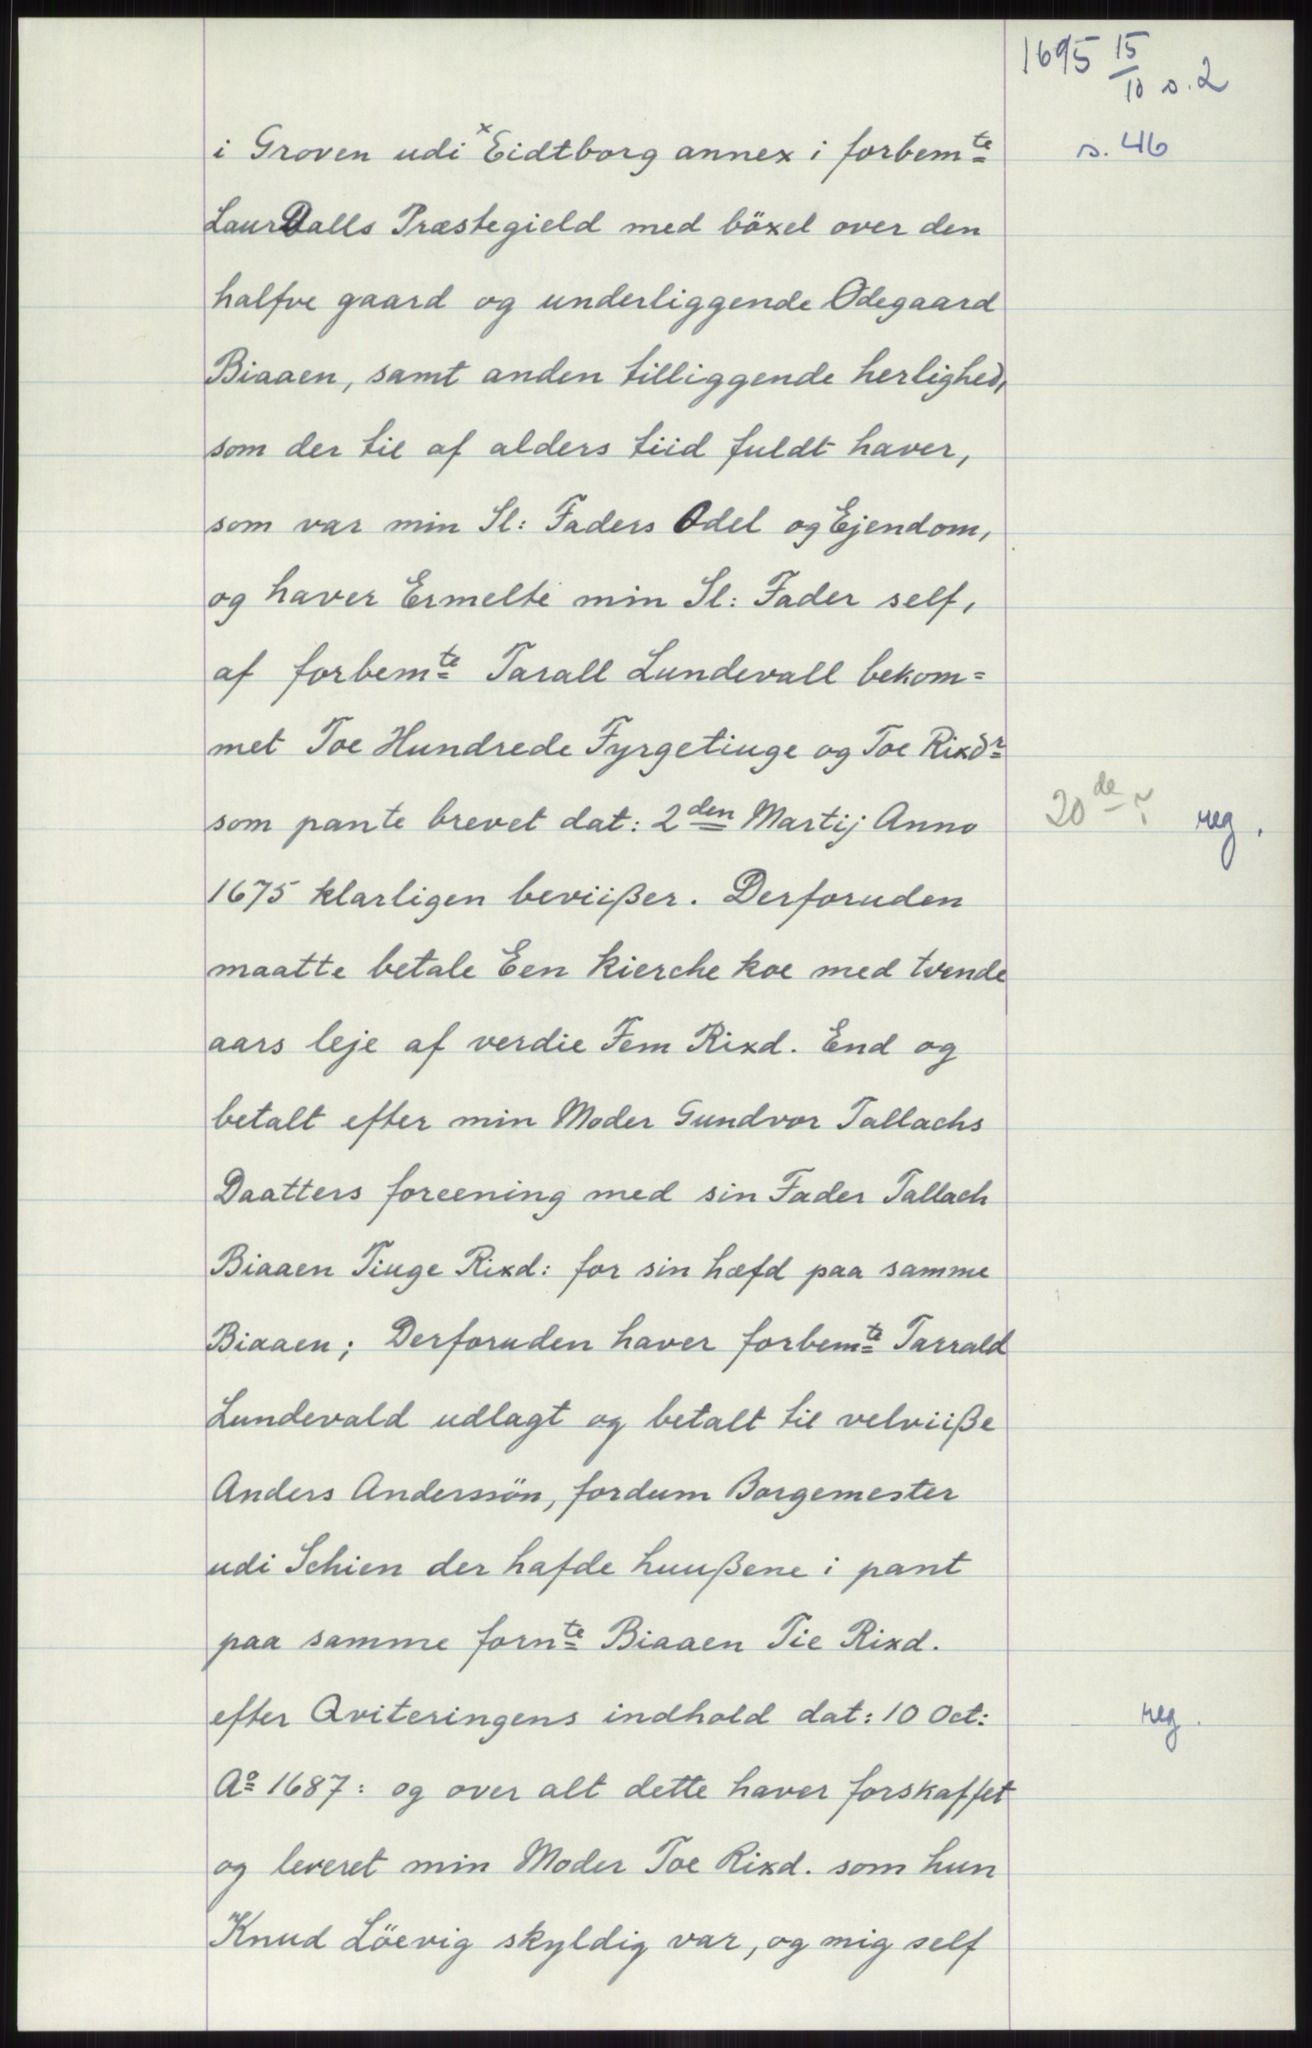 1695 15/10 s. 2
s. 46
i Groven udi x Eidtborg annex i forbemte
LaurDalls Præstegield med böxel over den
halfve gaard og underliggende Ödegaard
Biaaen, samt anden tilliggende herlighed,
som der til af alders tiid fuldt haver,
som var min Sl: Faders Odel og Ejendom,
og haver Ermelte min Sl: Fader self,
af forbemte Tarall Lundevall bekom=
met Toe Hundrede Fyrgetiuge og Toe Rixdr
som pante brevet dat: 2den Martij Anno
20de ? reg.
1675 klarligen beviißer. Derforuden
maatte betale Een kierche koe med tvende
aars leje af verdie Fem Rixd. End og
betalt efter min Moder Gundvor Tallachs
Daatters foreening med sin Fader Tallach
Biaaen Tiuge Rixd: for sin hæfd paa samme
Biaaen; Derforuden haver forbemte Tarrald
Lundevald udlagt og betalt til velviiße
Anders Anderssön, fordum Borgemester
udi Schien der hafde huußene i pant
paa samme fornte Biaaen Tie Rixd.
efter Qviteringens indhold dat: 10 Oct:
reg.
Ao 1687: og over alt dette haver forskaffet
og leveret min Moder Toe Rixd. som hun
Knud Löevig skyldig var, og mig self